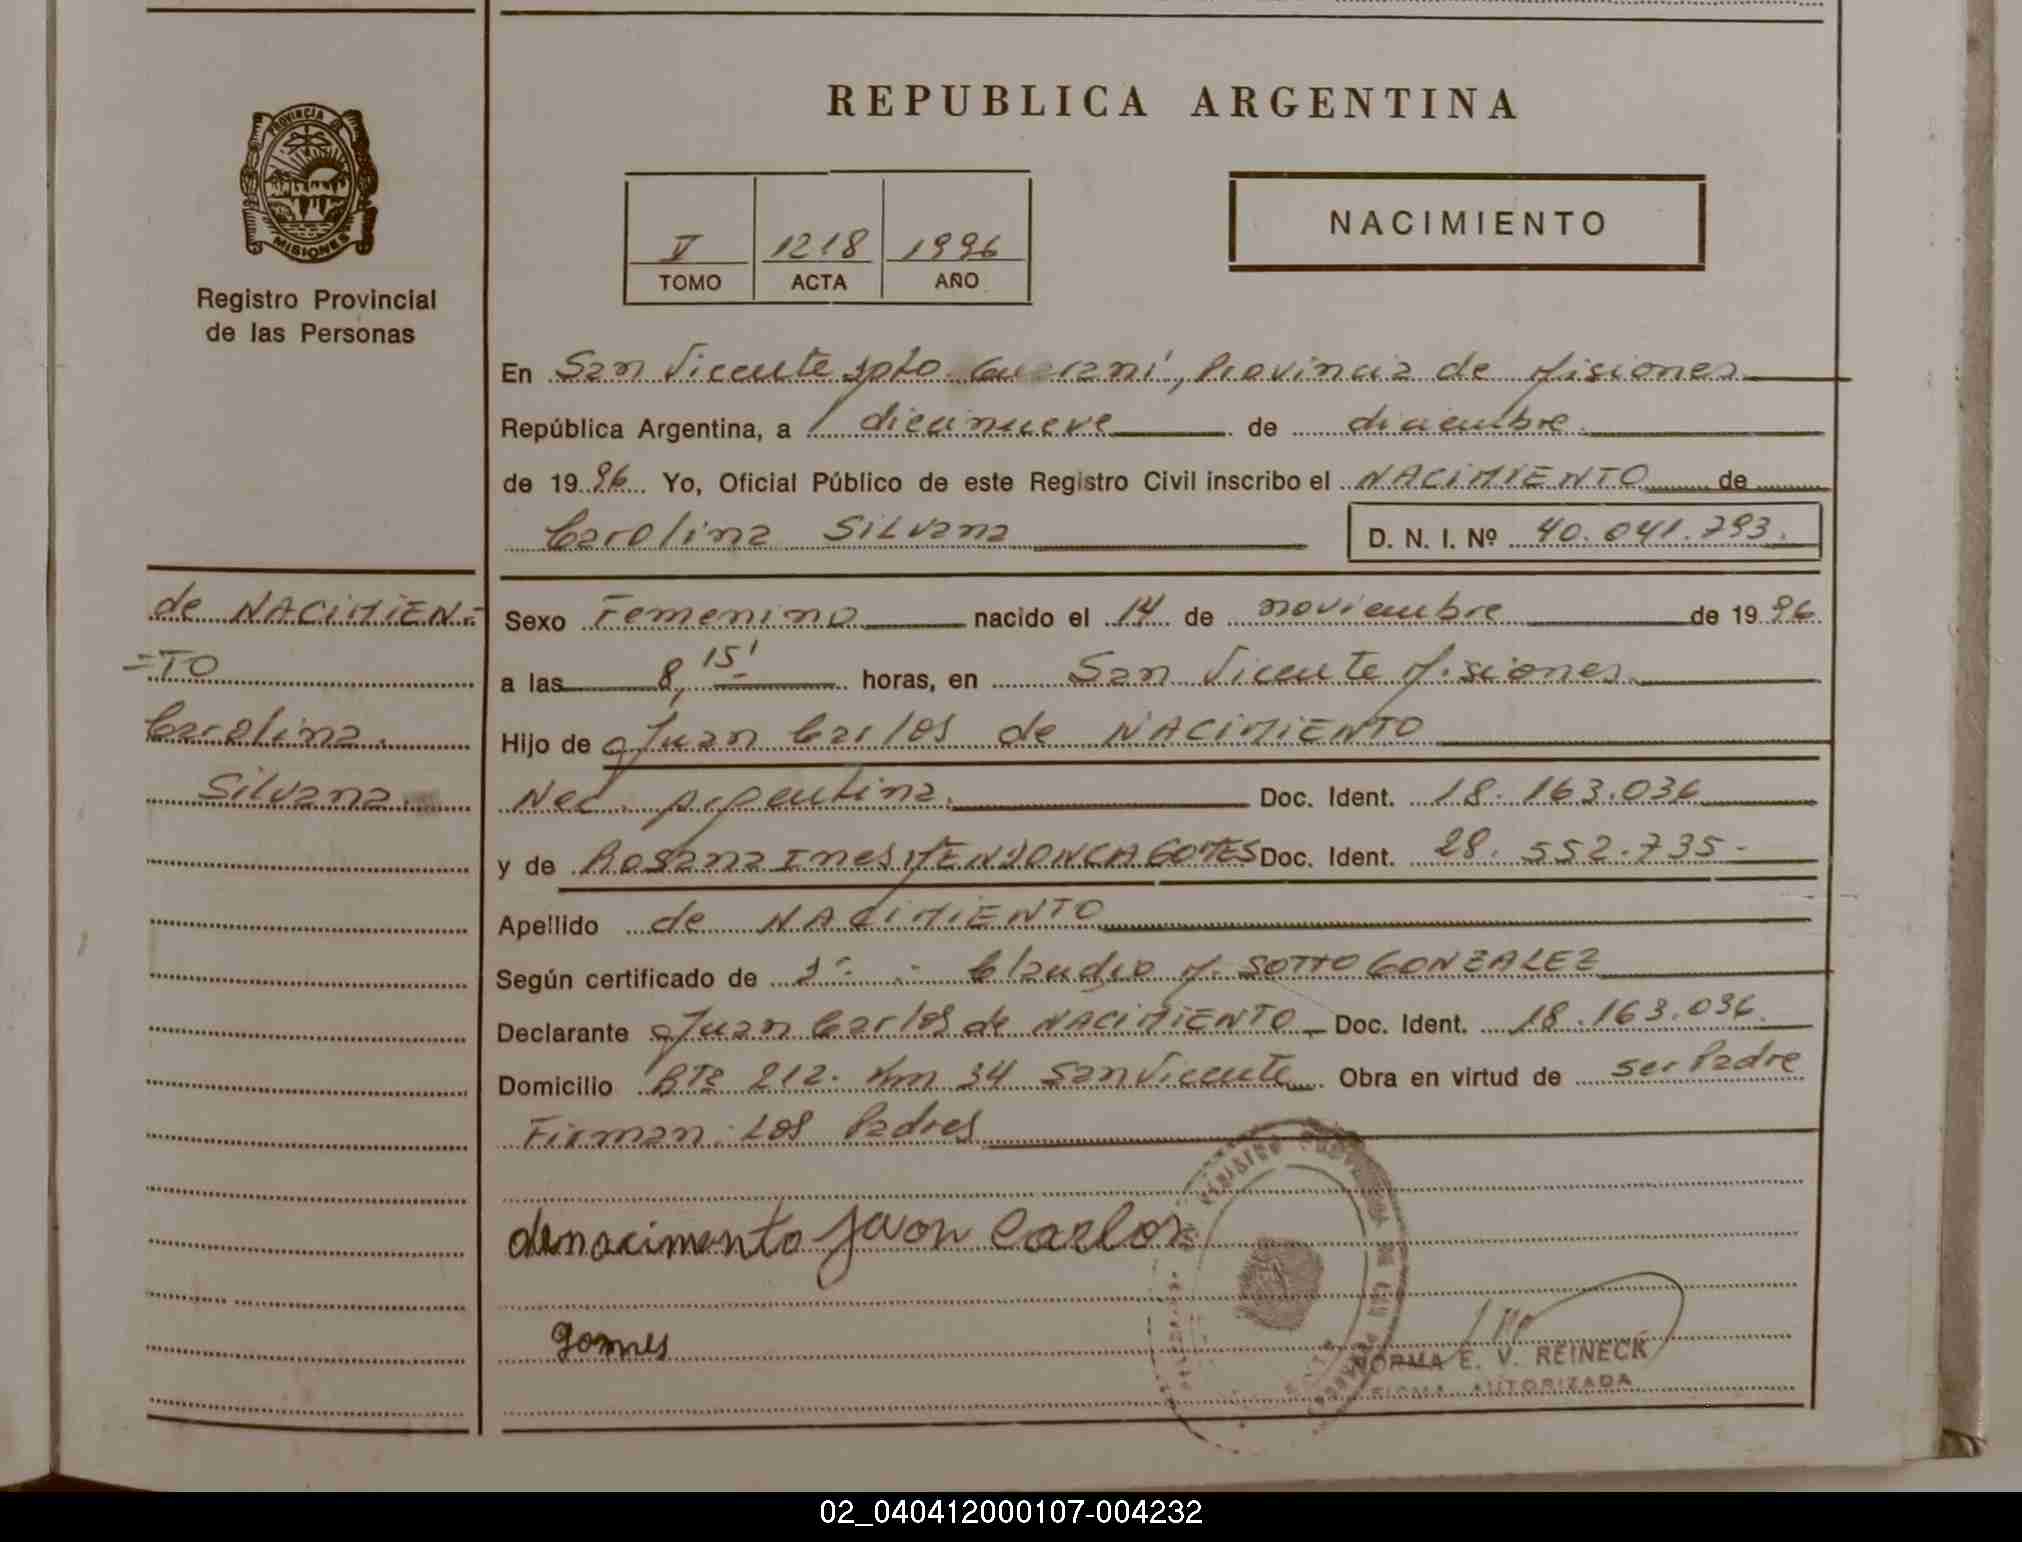 REPUBLICA ARGENTINA
PROVINCIA DE
MISIONES
Registro Provincial
de las Personas
V 1218 1996
TOMO ACTA AÑO
NACIMIENTO
En San Vicente Dpto Guaraní, Provincia de Misiones
República Argentina, a diecinueve de diciembre
de 1996 Yo, Oficial Público de este Registro Civil inscribo el NACIMIENTO de
Carolina Silvana
D. N. I. Nº 40.041.793.
de NACIMIEN=
=TO
Carolina
Silvana
Sexo Femenino nacido el 14 de noviembre de 1996
a las 8,15' horas, en San Vicente Misiones
Hijo de Juan Carlos de NACIMIENTO
Nac. Argentina. Doc. Ident. 18.163.036
y de Rosana Ines MENDONCA GOMES Doc. Ident. 28.552.735-
Apellido de NACIMIENTO
Según certificado de Dr. Claudio M. SOTTO GONZALEZ
Declarante Juan Carlos de NACIMIENTO Doc. Ident. 18.163.036
Domicilio RTE 212. Km 34 San Vicente Obra en virtud de ser Padre
Firman Los Padres
denacimento Juan Carlos
gomes
NORMA E. V. REINECK
FIRMA AUTORIZADA
02_040412000107-004232